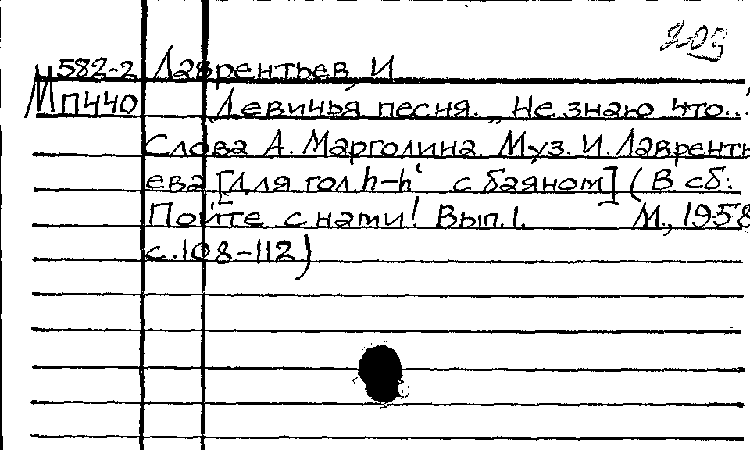 209
М 582-2 Лаврентьев, И
П440 Девичья песня. „Не знаю что..."
Слова А. Марголина. Муз. И. Лавренть
ева [Для гол. h-h' с баяном] (В сб:
Пойте с нами! Вып. 1. М., 1958
с. 108-112)